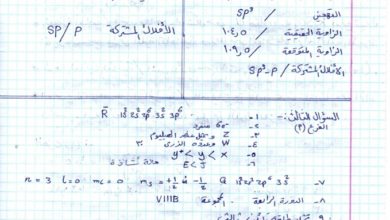 التهجين / SP³
الزاوية الحقيقية / ١٠٤,٥
الزاوية المتوقعة / ١٠٩,٥
الأفلاك المشتركة / SP³-P
الأفلاك المشتركة / SP/P
السؤال الثالث:
الفرع (٢)
١- R̄ 1s² 2s² 2p⁶ 3s² 3p⁶
٢-
٣- Z
٤- W وعدده الذري ٣٠
٥- y⁺ < y < x
٦- E < J حالة شاذة
٧- n = 3 l = 0 mₗ = 0 mₛ = +½ أو -½ Q 1s² 2s² 2p⁶ 3s²
٨- الدورة الرابعة المجموعة VIIIB